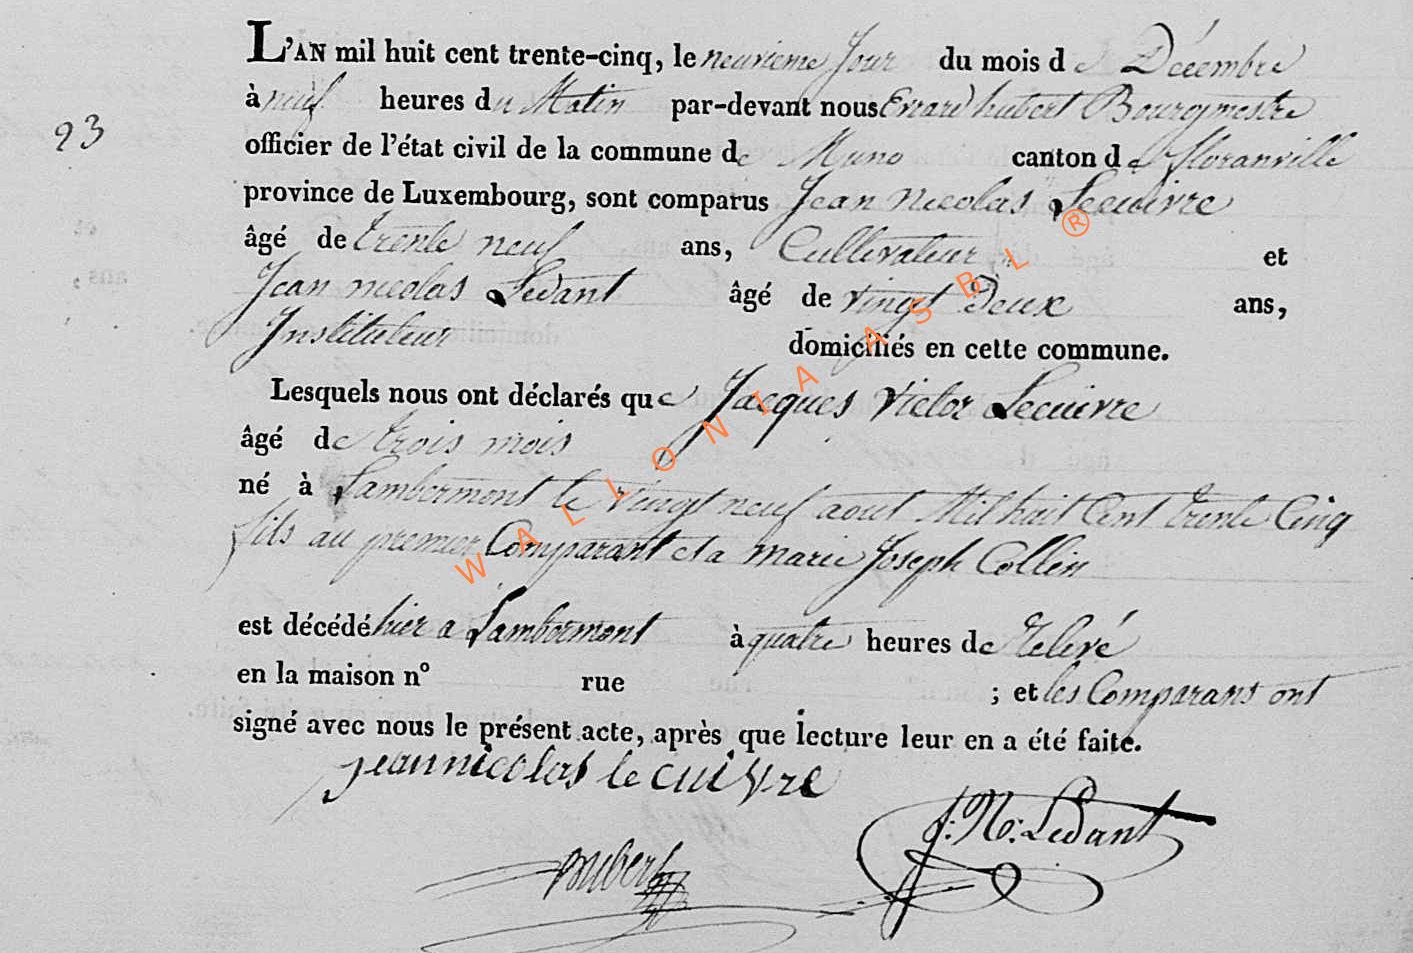 L'AN mil huit cent trente-cinq, le neuvieme Jour du mois de Décembre
à neuf heures du Matin par-devant nous Evrard hubert Bourgmestre
23
officier de l'état civil de la commune de Muno canton de floranville
province de Luxembourg, sont comparus Jean nicolas Lecuivre
âgé de trente neuf ans, Cultivateur et
Jean nicolas Ledant âgé de vingt Deux ans,
Instituteur domiciliés en cette commune.
Lesquels nous ont déclarés que Jacques Victor Lecuivre
âgé de trois mois
né à Lambermont le vingt neuf aout Mil huit Cent trente Cinq
fils au premier Comparant et a marie Joseph Collin
est décédé hier a Lambermont à quatre heures de relevé
en la maison n° rue ; et les Comparans ont
signé avec nous le présent acte, après que lecture leur en a été faite.
jean nicolas le cuivre
J: N: Ledant
hubert
WALLONIA ASBL ®